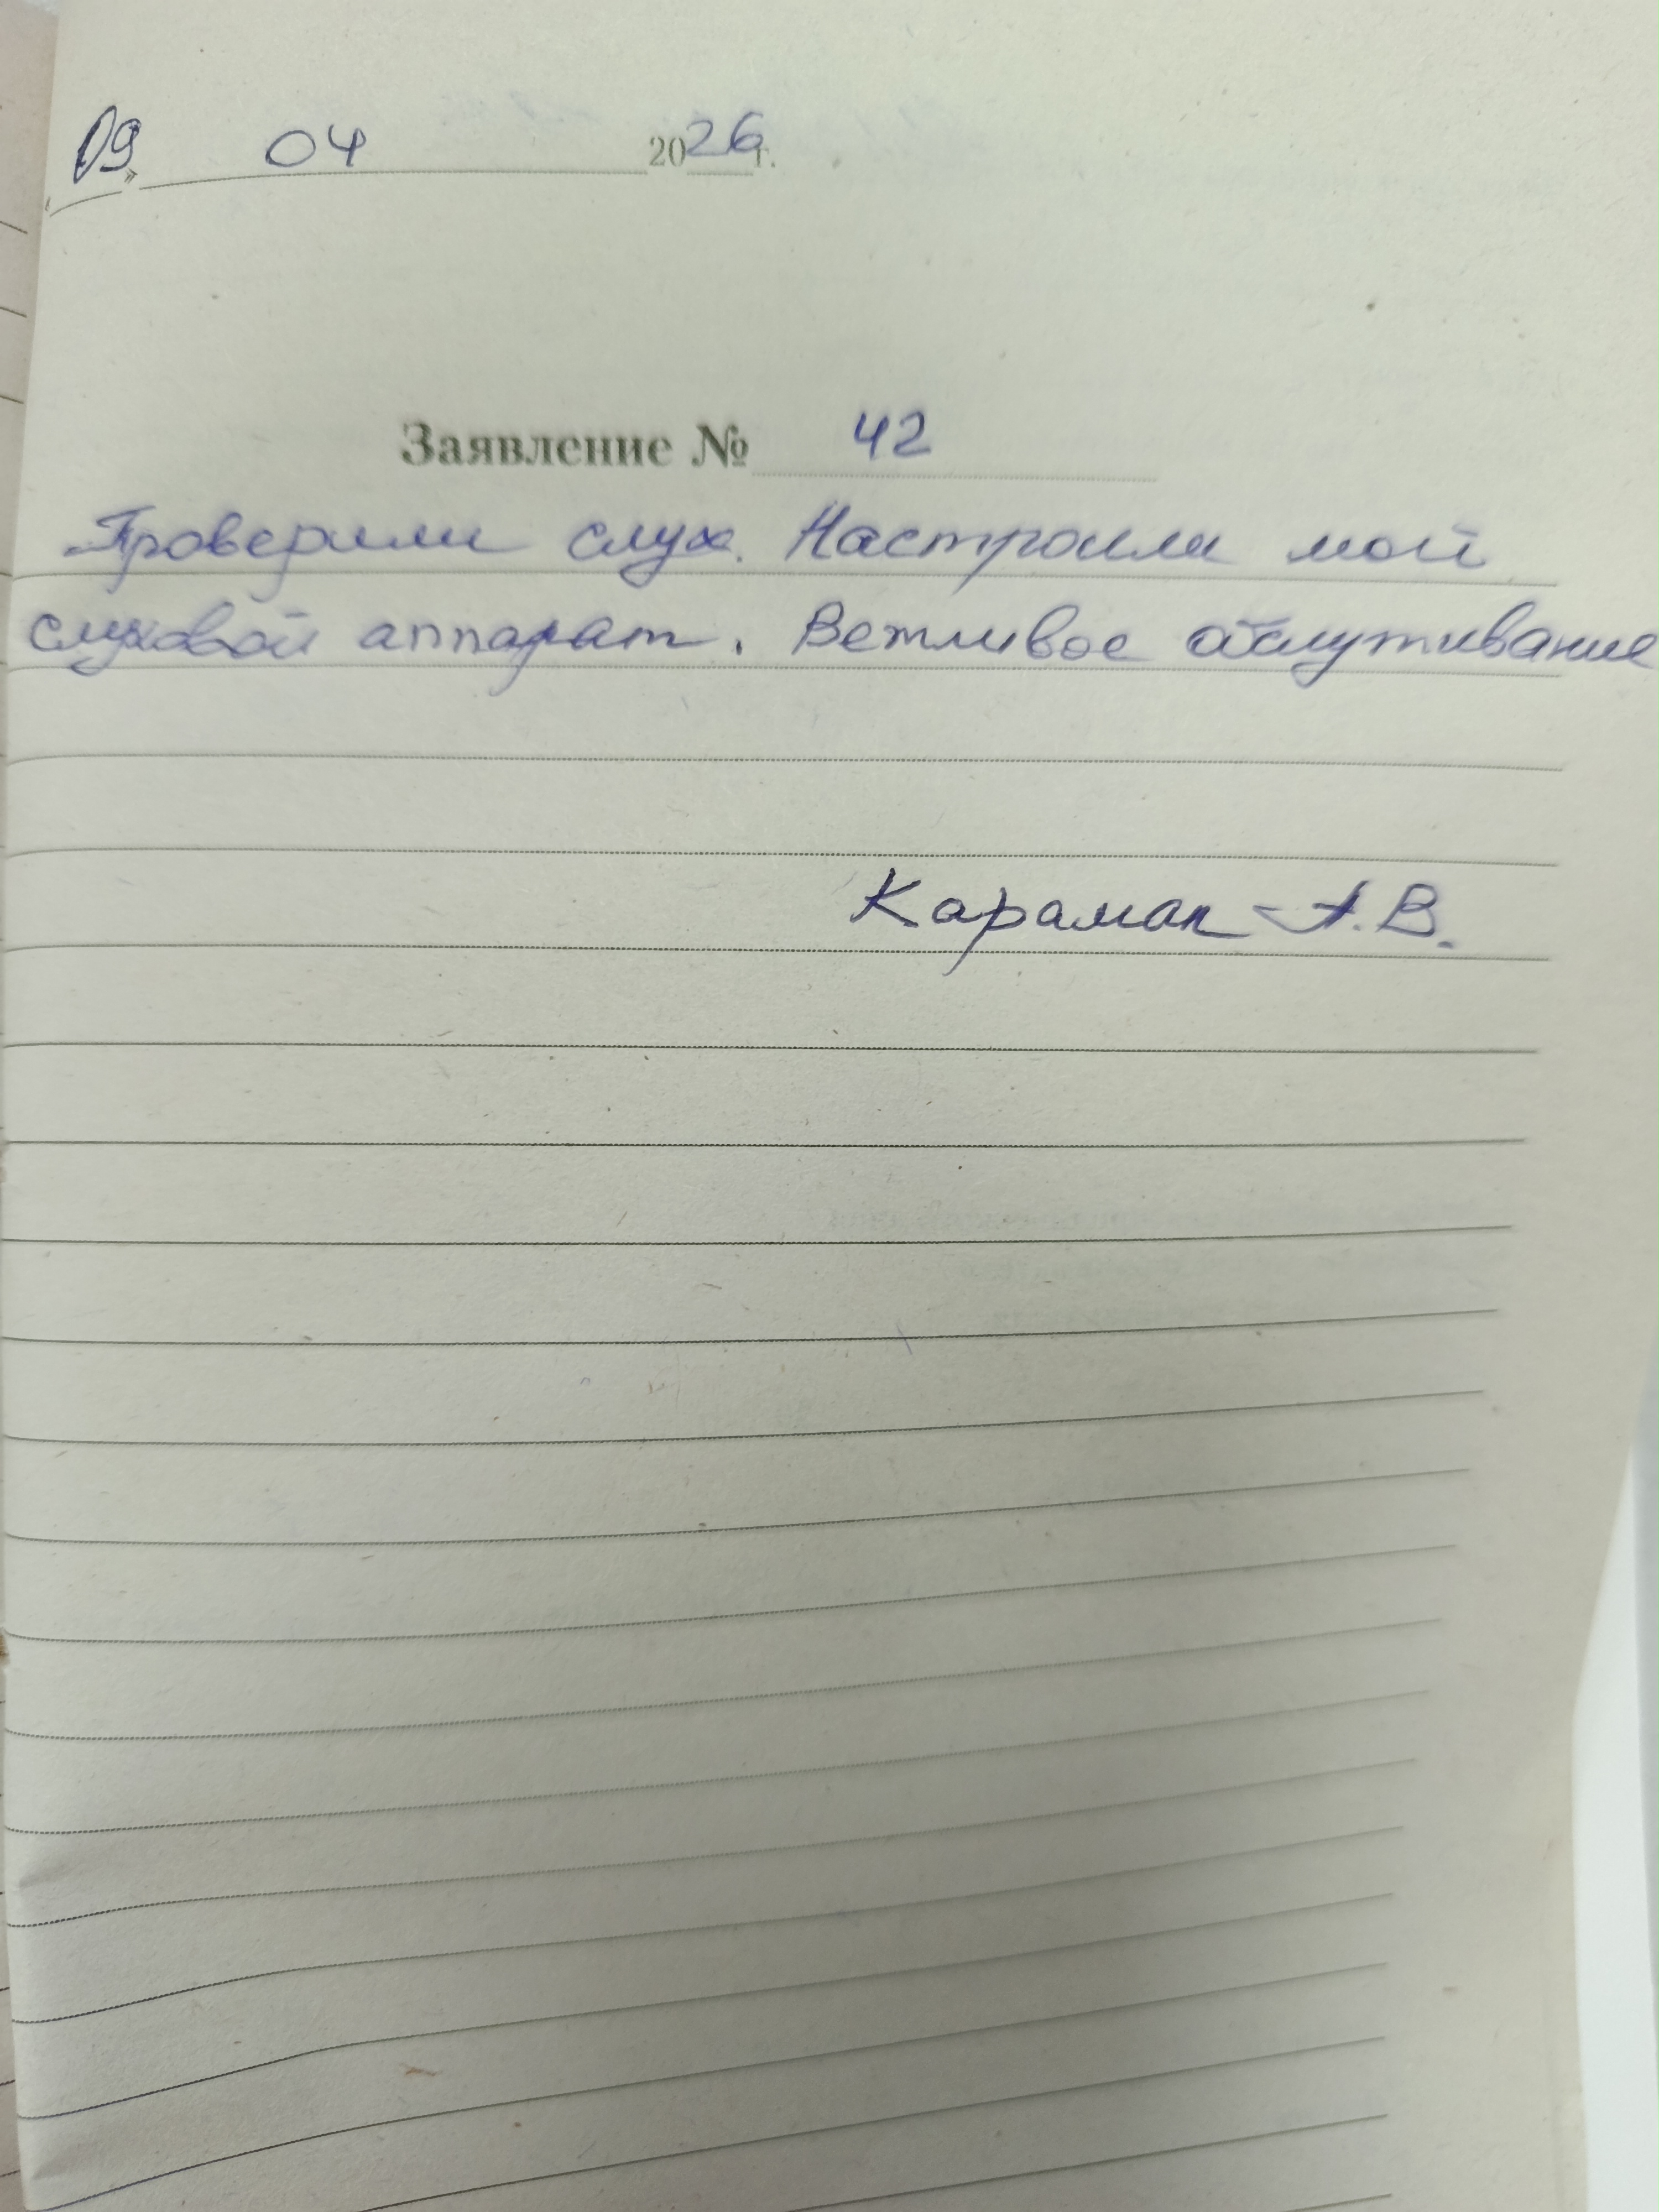 09» 04 2026г.
Заявление № 42
Проверили слух. Настроили мой
слуховой аппарат. Вежливое обслуживание
Караман А.В.